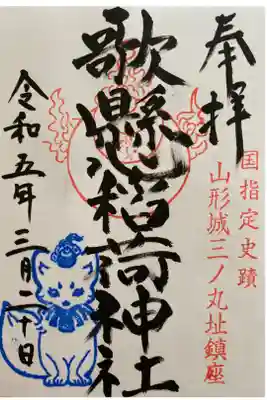 奉拝
国指定史蹟
山形城三ノ丸址鎮座
歌懸稲荷神社
令和五年三月二十日